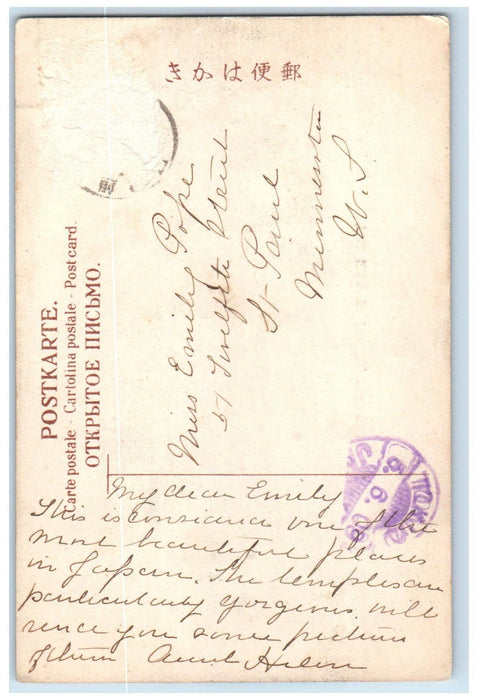 郵便はかき
POSTKARTE.
Carte postale - Cartolina postale - Postcard.
ОТКРЫТОЕ ПИСЬМО.
Miss Emily Pope
57 Twelfth Street
St Paul
Minnesota
U. S.
My dear Emily
This is one of the
most beautiful places
in Japan. The temples are
particularly gorgeous will
you some pictures
of them Aunt Helen